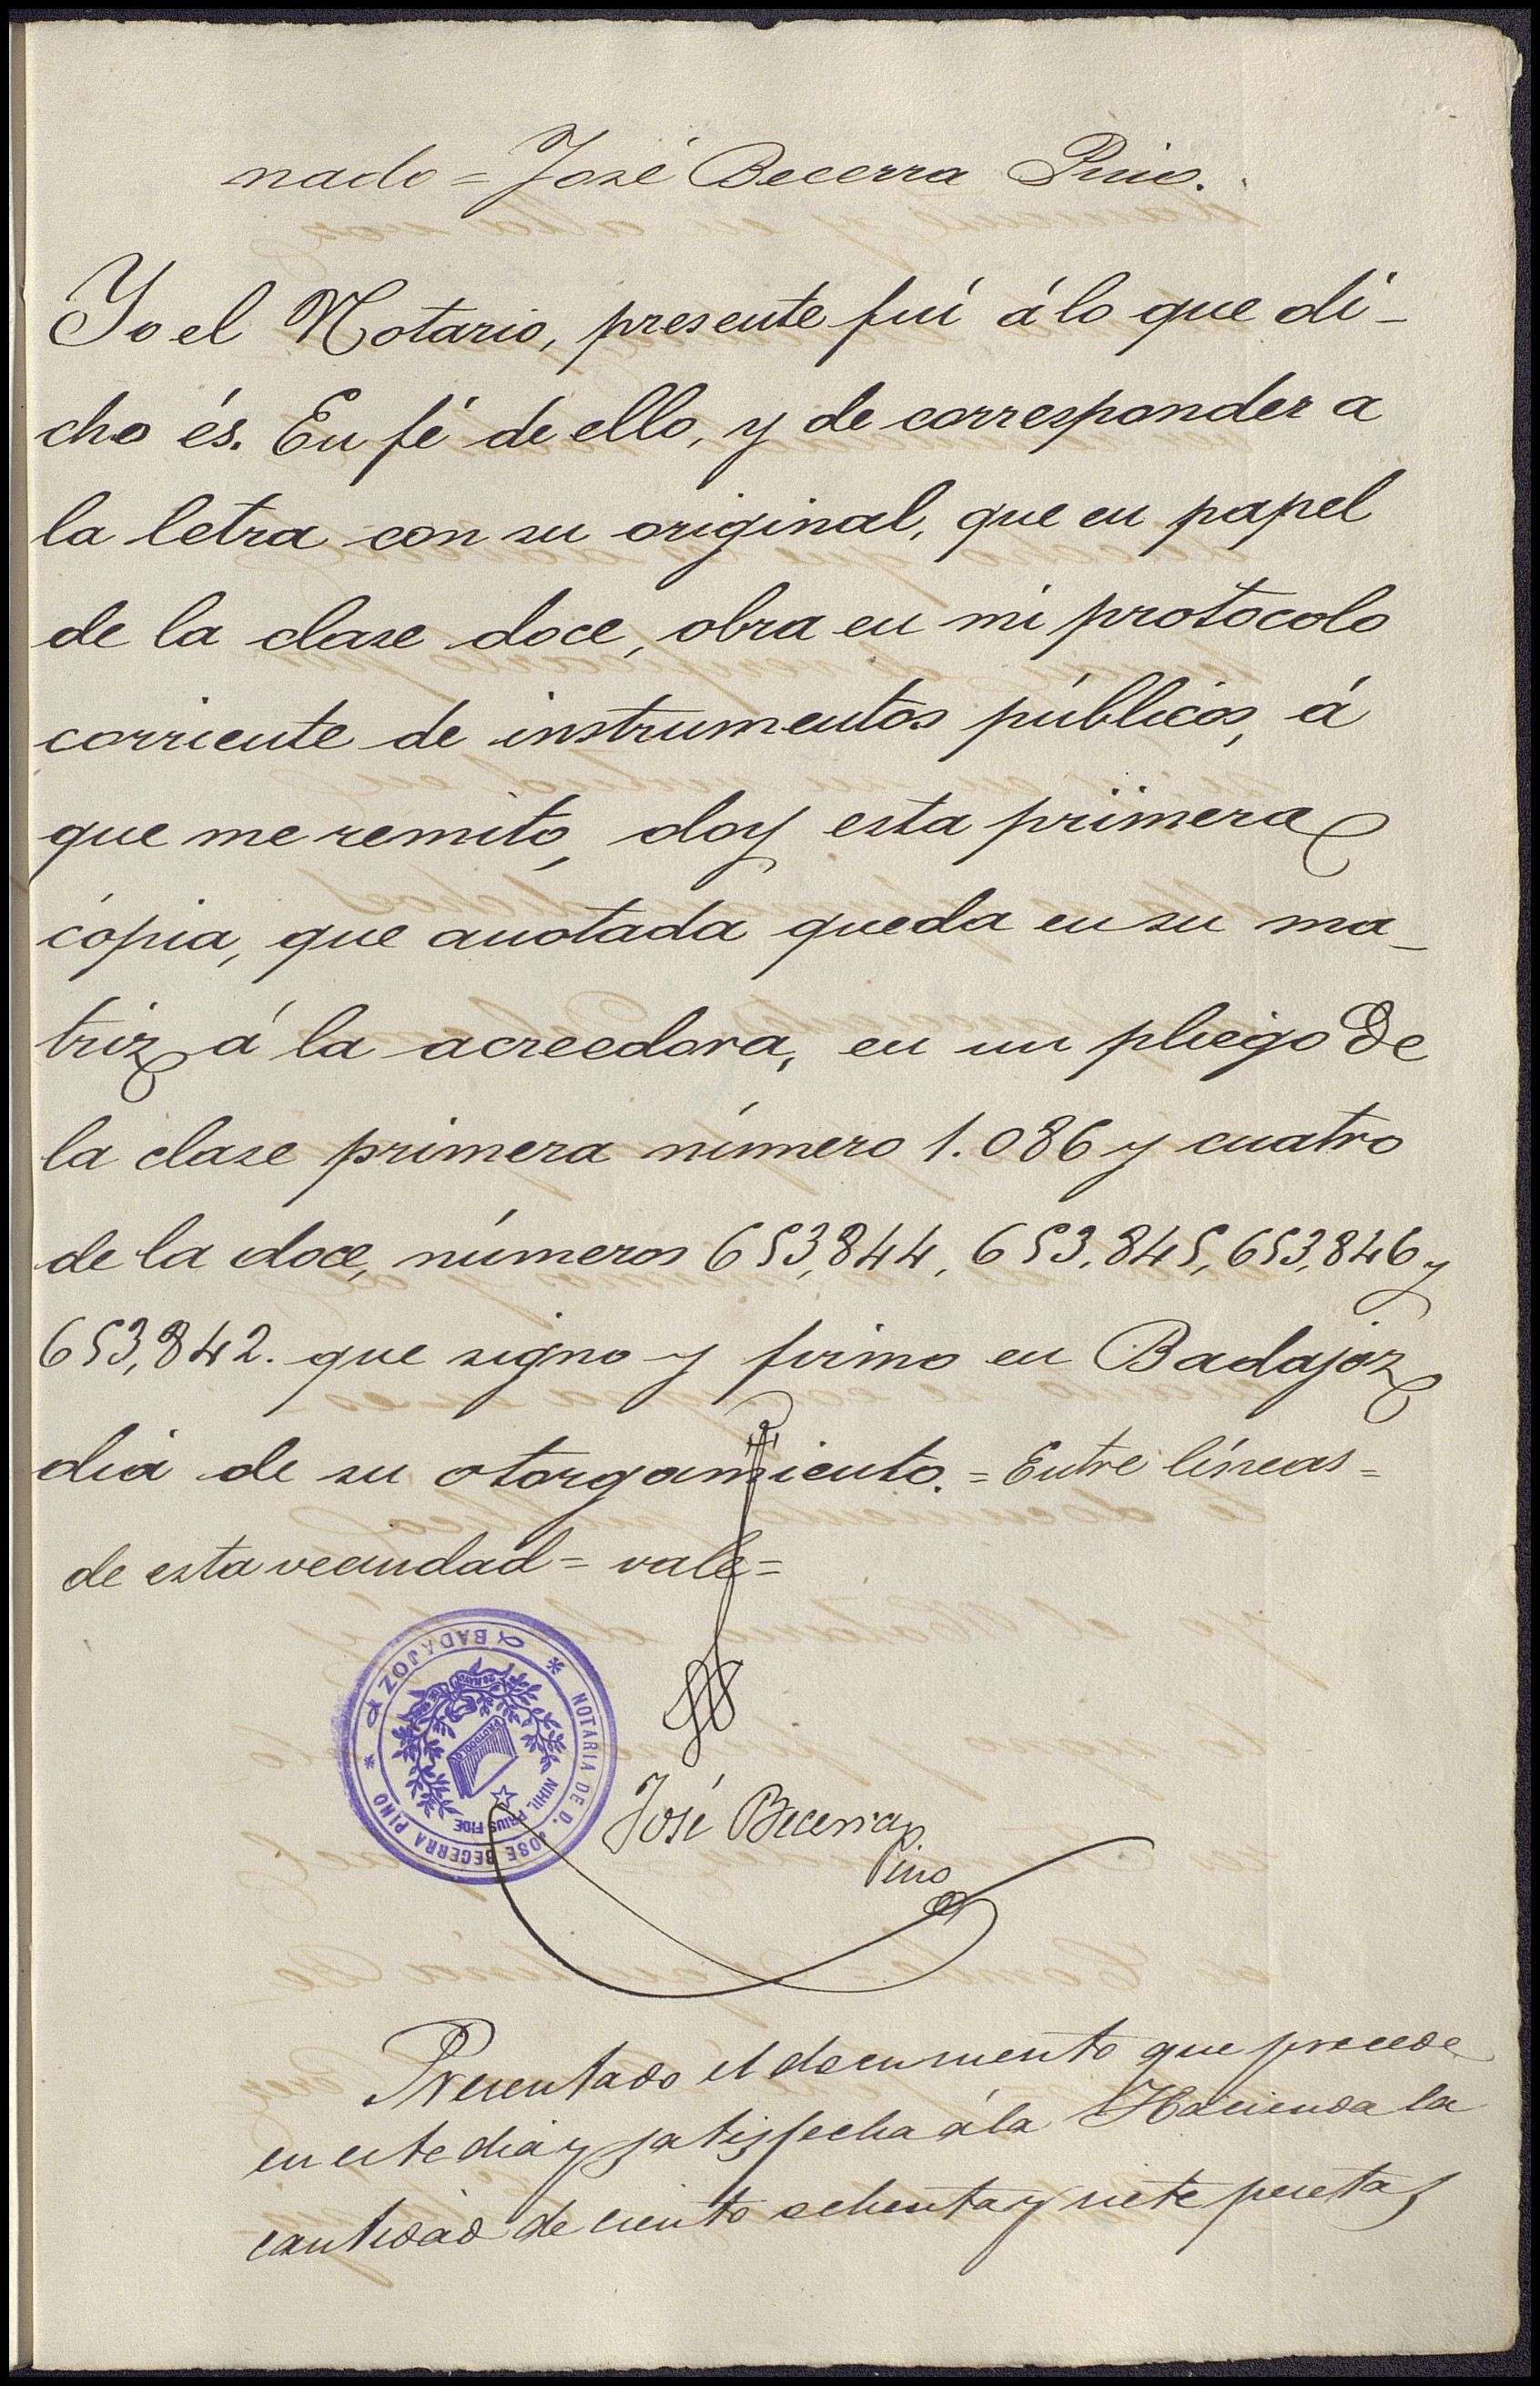 nado = José Becerra Pino.
Yo el Notario, presente fuí á lo que di-
cho és. En fé de ello, y de corresponder a
la letra con su original, que en papel
de la clase doce, obra en mi protocolo
corriente de instrumentos públicos, á
que me remito, doy esta primera
cópia, que anotada queda en su ma-
triz á la acreedora, en un pliego de
la clase primera número 1.086 y cuatro
de la doce, números 653,844, 653.845, 653,846 y
653,842. que signo y firmo en Badajoz
dia de su otorgamiento. = Entre líneas =
de esta vecindad = vale =
NOTARIA DE D. JOSE BECERRA PINO
* BADAJOZ *
NIHIL PRIUS FIDE
PROTOCOLO
José Becerra
Pino
Presentado el documento que precede
en este dia y satisfecha á la Hacienda la
cantidad de ciento ochenta y siete pesetas